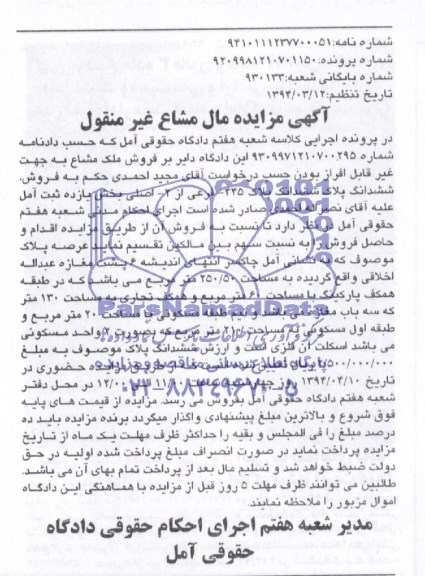 شماره نامه:۹۴۱۰۱۱۱۲۳۷۷۰۰۰۵۱
شماره پرونده:۹۲۰۹۹۸۱۲۱۰۷۰۱۱۵۰
شماره بایگانی شعبه:۹۳۰۱۳۳
تاریخ تنظیم:۱۳۹۴/۰۳/۱۲
آگهی مزایده مال مشاع غیر منقول
در پرونده اجرایی کلاسه شعبه هفتم دادگاه حقوقی آمل که حسب دادنامه
شماره ۹۳۰۹۹۷۱۲۱۰۷۰۰۲۹۵ این دادگاه دایر بر فروش ملک مشاع به جهت
غیر قابل افراز بودن حسب درخواست آقای مجید احمدی حکم به فروش
ششدانگ پلاک ششدانگ پلاک ۴۳۵ فرعی از ۲ـ اصلی بخش یازده ثبت آمل
علیه آقای نصراله احمدی صادر شده است اجرای احکام مدنی شعبه هفتم
حقوقی آمل در نظر دارد تا نسبت به فروش آن از طریق مزایده اقدام و
حاصل فروش را به نسبت سهم بین مالکین تقسیم نماید عرصه پلاک
موصوف که به نشانی آمل چاکسر انتهای اندیشه ۶ پشت مغازه عبداله
اخلاقی واقع گردیده به مساحت ۲۵۰/۵۰ متر مربع می باشد که در طبقه
همکف پارکینگ با مساحت ۶۰ متر مربع و همکف تجاری به مساحت ۱۳۰ متر
که سه باب مغازه می باشد و نیم طبقه مسکونی با مساحت ۲۰ متر مربع و
طبقه اول مسکونی به مساحت ۲۱۰ متر مربع که بصورت ۲ واحد مسکونی
می باشد اسکلت آن فلزی است و ارزش ششدانگ پلاک موصوف به مبلغ
۵۰۰/۰۰۰/۰۰۰ ریال ارزیابی شده است که از طریق مزایده حضوری در
تاریخ ۱۳۹۴/۰۴/۱۰ روز چهارشنبه ساعت ۱۱ الی ۱۲/۰۰ در محل دفتر
شعبه هفتم دادگاه حقوقی آمل بفروش می رسد. مزایده از قیمت های پایه
فوق شروع و بالاترین مبلغ پیشنهادی واگذار میگردد برنده مزایده باید ده
درصد مبلغ را فی المجلس و بقیه را حداکثر ظرف مهلت یک ماه از تاریخ
مزایده پرداخت نماید در صورت انصراف مبلغ پرداخت شده اولیه در حق
دولت ضبط خواهد شد و تسلیم مال بعد از پرداخت تمام بهای آن می باشد.
طالبین می توانند ظرف مهلت ۵ روز قبل از مزایده با هماهنگی این دادگاه
اموال مزبور را ملاحظه نمایند.
مدیر شعبه هفتم اجرای احکام حقوقی دادگاه
حقوقی آمل
ParsNamadData
پایگاه اطلاع رسانی مناقصه و مزایده
۰۲۱-۸۸۳۴۹۶۷۰-۵